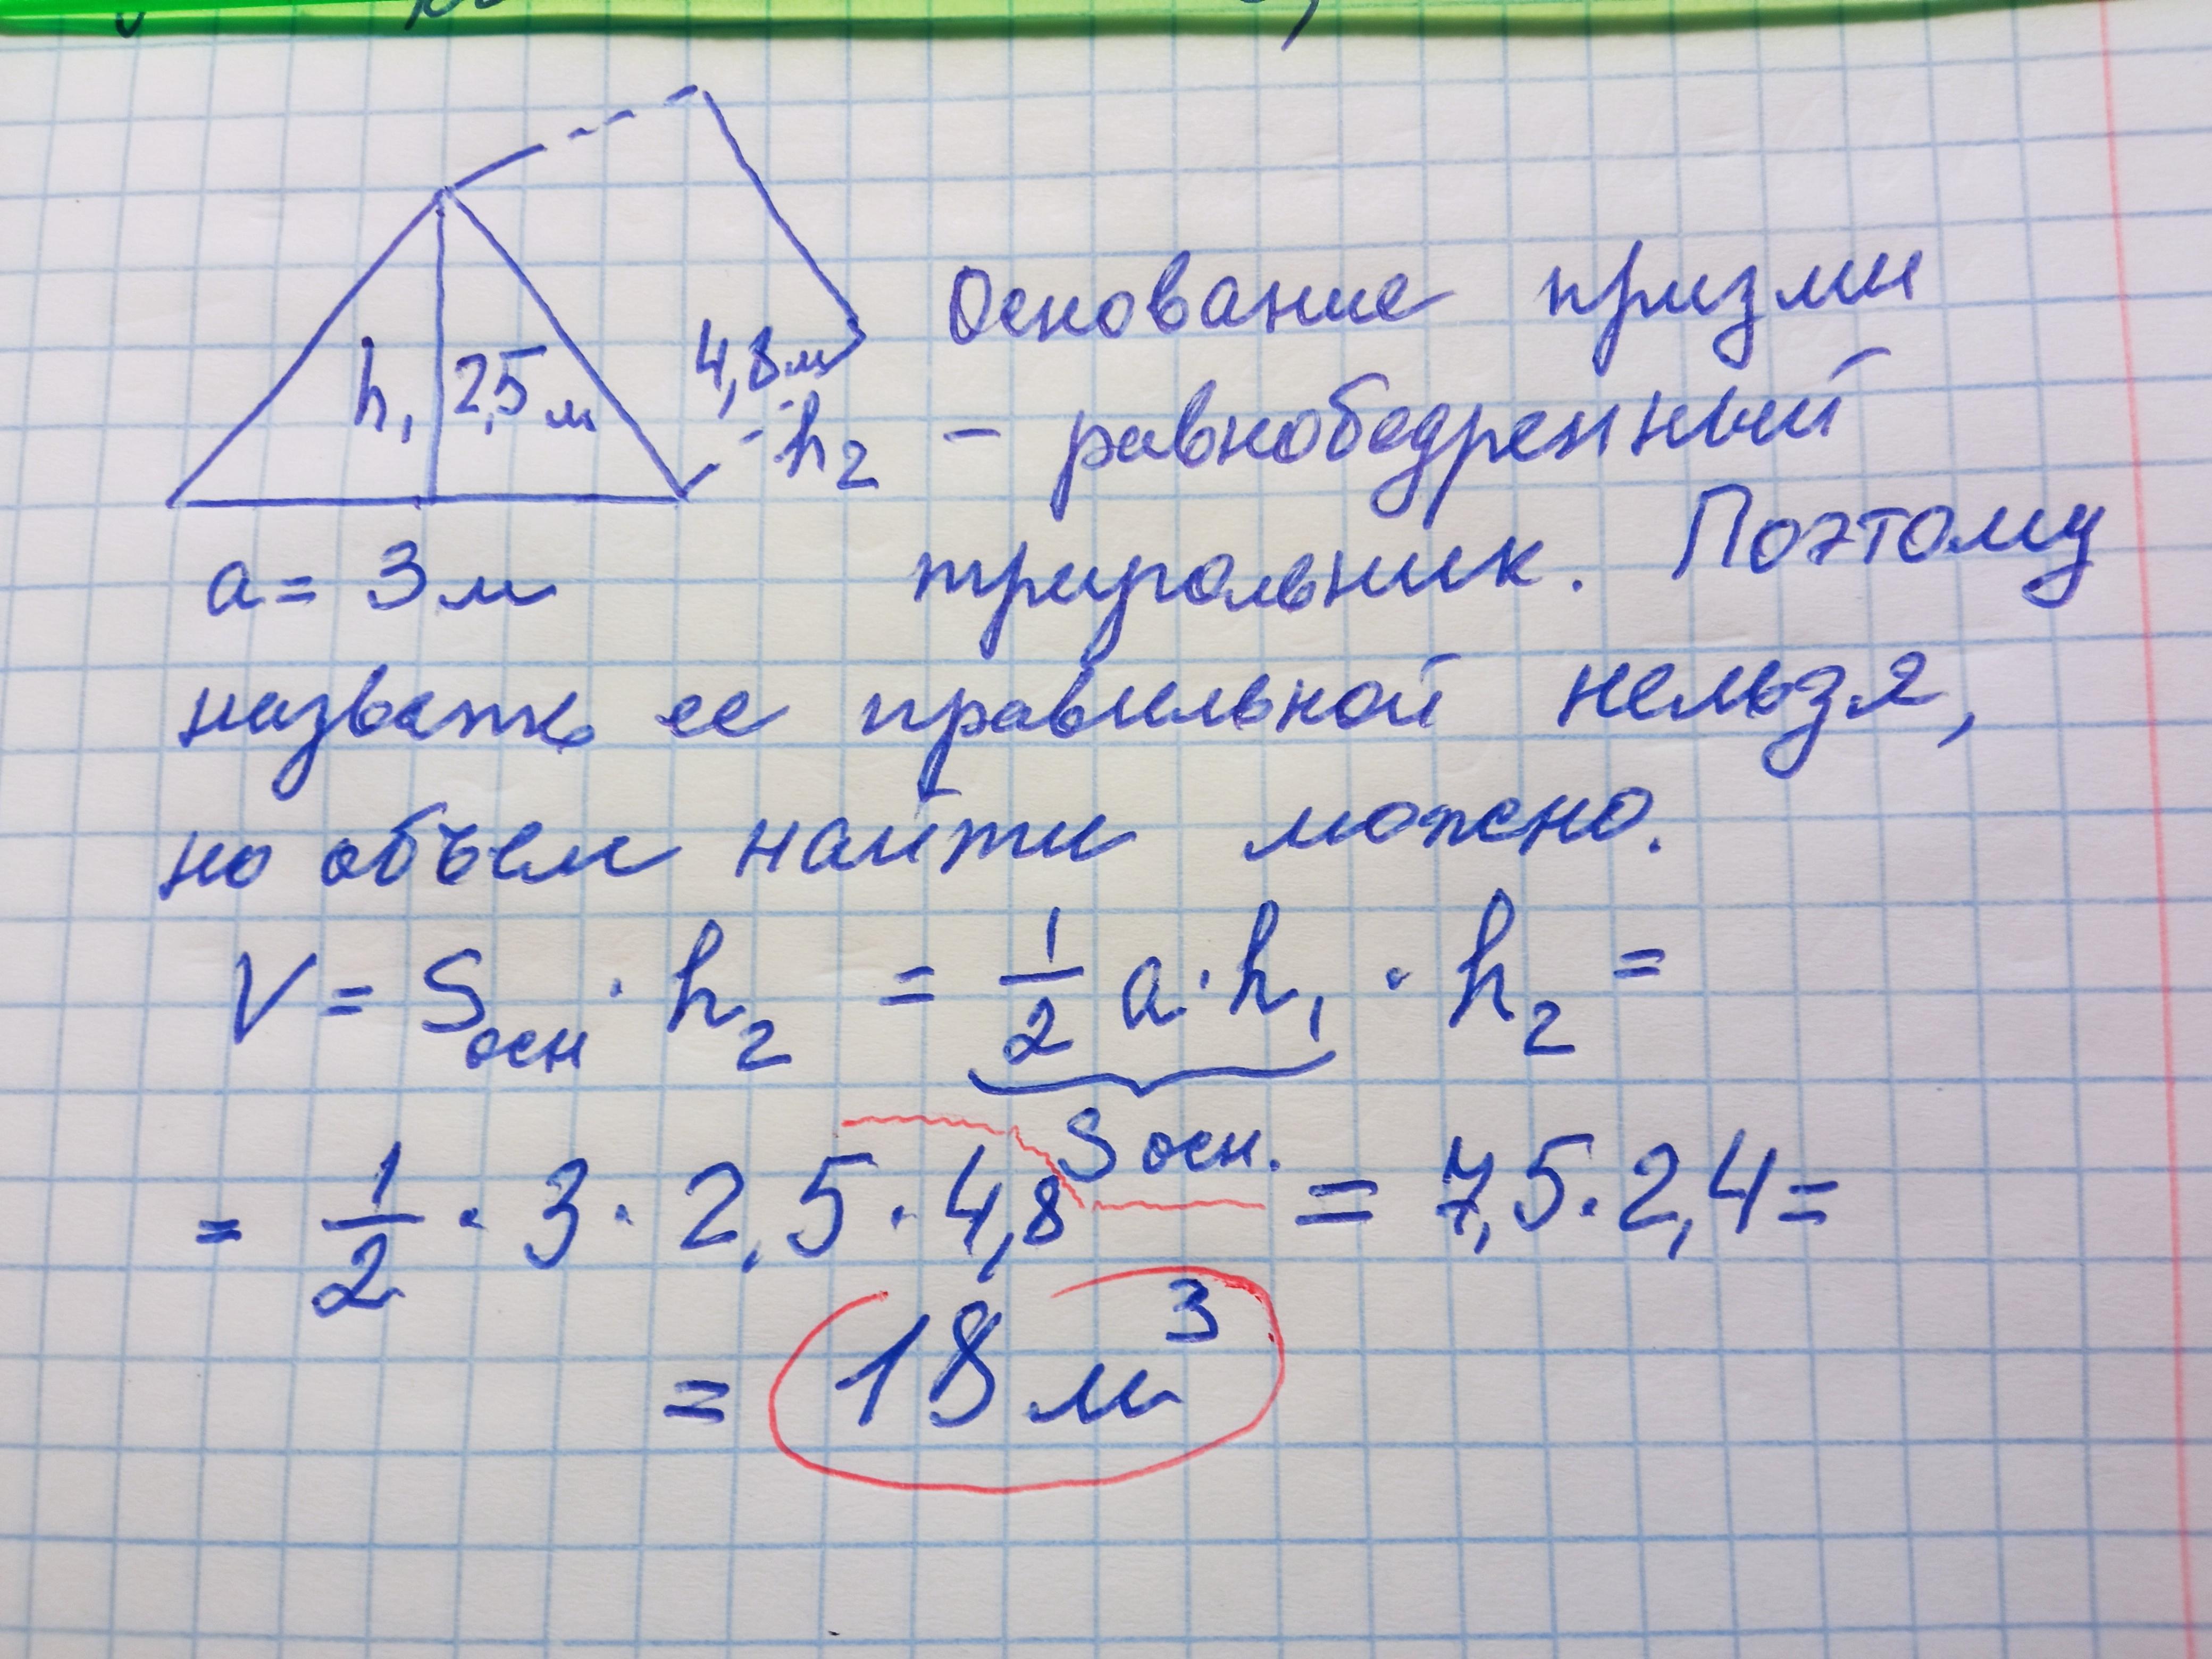 h₁ 2,5 м
4,8 м
h₂
a = 3 м
Основание призмы
- равнобедренный
треугольник. Поэтому
назвать ее правильной нельзя,
но объем найти можно.
V = Sосн · h₂ = 1/2 a · h₁ · h₂ =
Sосн.
= 1/2 · 3 · 2,5 · 4,8 = 7,5 · 2,4 =
= 18 м³